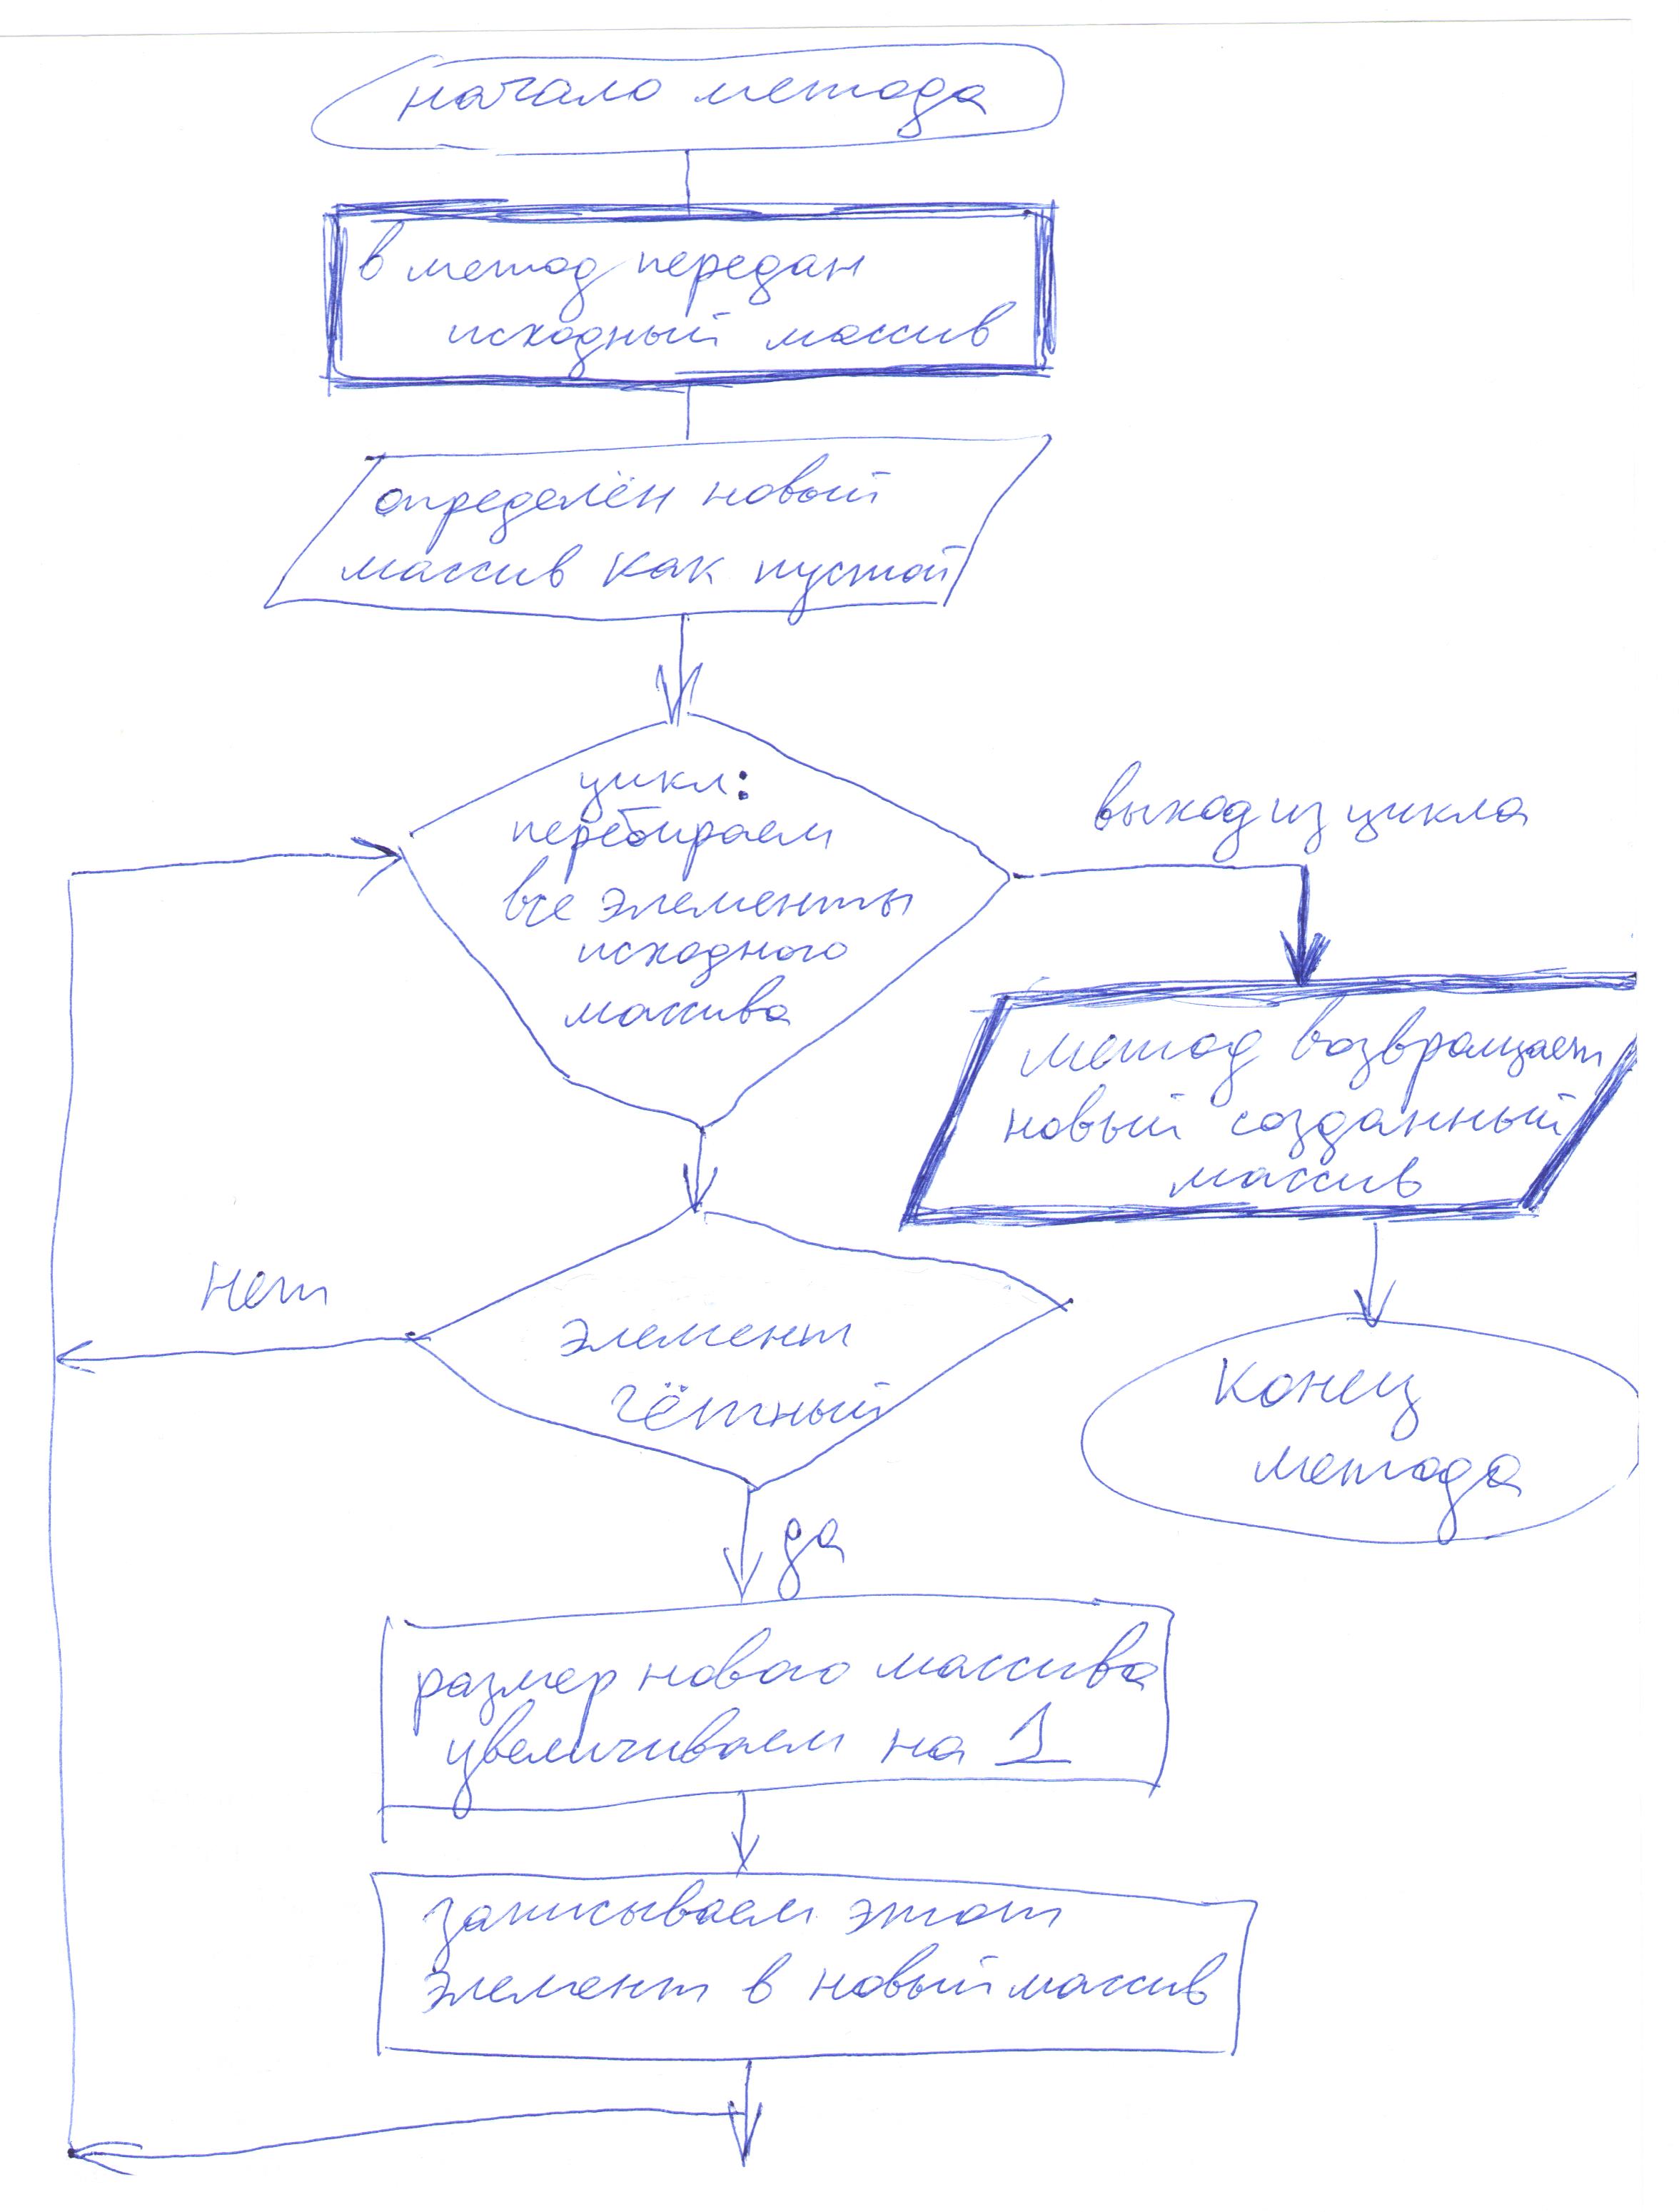 начало метода
в метод передан
исходный массив
определён новый
массив как пустой
цикл:
перебираем
все элементы
исходного
массива
выход из цикла
метод возвращает
новый созданный
массив
конец
метода
нет
элемент
чётный
да
размер нового массива
увеличиваем на 1
записываем этот
элемент в новый массив